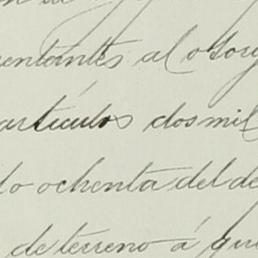 entantes al otorg
artículos dos mil
do ochenta del de
de terreno á qu